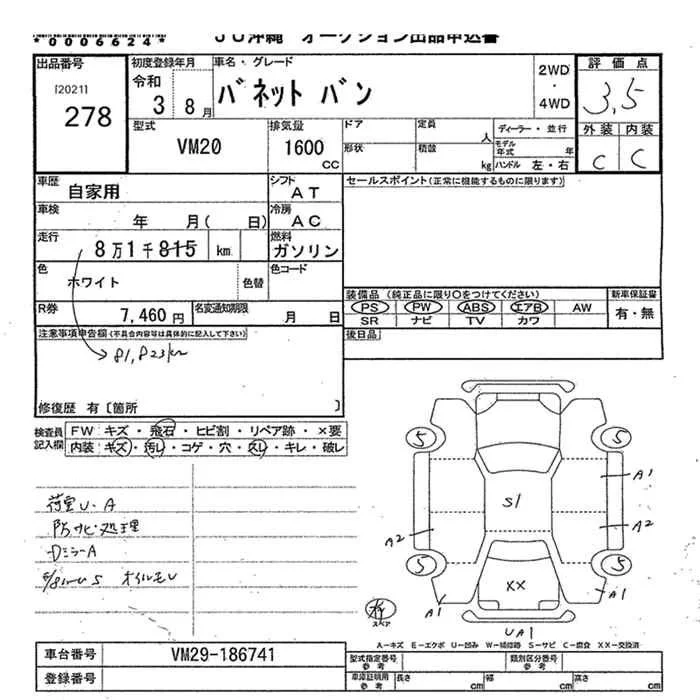 *0006624*
JU沖縄 オークション出品申込書
出品番号
[2021]
278
初度登録年月
令和
3 8月
車名・グレード
バネット バン
2WD
・
4WD
評価点
3,5
外装 内装
C C
型式
VM20
排気量
1600
CC
ドア
定員
人
ディーラー・並行
モデル年式
年
形状
積載
kg
ハンドル 左・右
車歴
自家用
シフト
AT
セールスポイント(正常に機能するものに限ります)
車検
年 月( 日)
冷房
AC
走行
8万1千815 km
燃料
ガソリン
色
ホワイト
色替
色コード
R券
7,460円
名変通知期限
月 日
装備品(純正品に限り○をつけてください)
新車保証書
PS PW ABS エアB AW
有・無
SR ナビ TV カワ
後日品
注意事項申告欄(不具合内容等は具体的に記入して下さい)
81,823km
修復歴 有〔箇所 〕
検査員記入欄
FW キズ・飛石・ヒビ割・リペア跡・×要
内装 キズ・汚レ・コゲ・穴・スレ・キレ・破レ
荷室U・A
防サビ処理
DミラーA
オイルモレ
5 5
A1
S1
A2 A2
5 5
XX
A1 A1
UA1
スペア
A-キズ E-エクボ U-凹み W-補修跡 S-サビ C-腐食 XX-交換済
車台番号
VM29-186741
型式指定番号
参考
類別区分番号
参考
登録番号
車庫証明用
参考
長さ
cm
幅
cm
高さ
cm